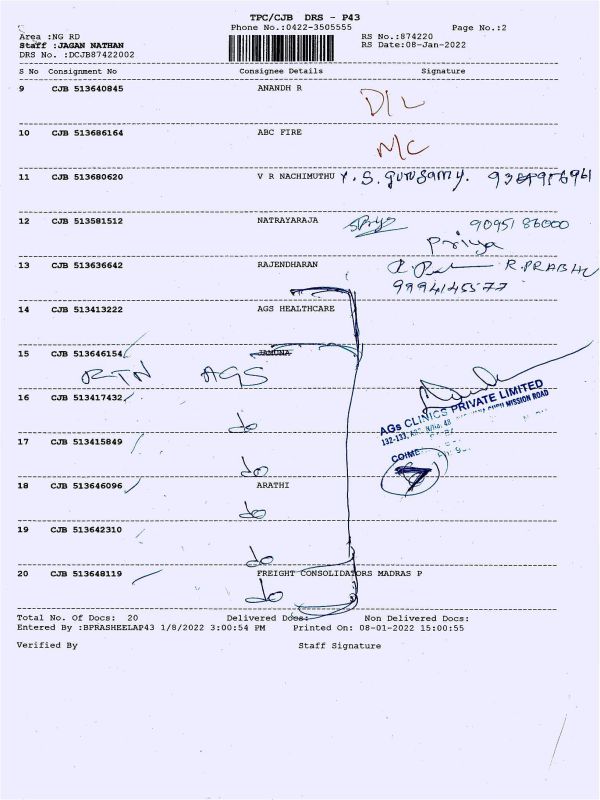 TPC/CJB DRS - P43
Phone No.:0422-3505555 Page No.:2
Area :NG RD RS No.:874220
Staff :JAGAN NATHAN RS Date:08-Jan-2022
DRS No. :DCJB87422002
S No Consignment No Consignee Details Signature
9 CJB 513640845 ANANDH R
D/L
10 CJB 513686164 ABC FIRE
N/C
11 CJB 513680620 V R NACHIMUTHU Y. S. Gurusamy.
12 CJB 513581512 NATRAYARAJA 9095186000
Priya
13 CJB 513636642 RAJENDHARAN R.PRABHU
9994145577
14 CJB 513413222 AGS HEALTHCARE
15 CJB 513646154 JAMUNA
RTN AGS
16 CJB 513417432
do
AGS CLINICS PRIVATE LIMITED
MISSION ROAD
17 CJB 513415849
do
18 CJB 513646096 ARATHI
do
7
19 CJB 513642310
do
20 CJB 513648119 FREIGHT CONSOLIDATORS MADRAS P
do
Total No. Of Docs: 20 Delivered Docs: Non Delivered Docs:
Entered By :BPRASHEELAP43 1/8/2022 3:00:54 PM Printed On: 08-01-2022 15:00:55
Verified By Staff Signature